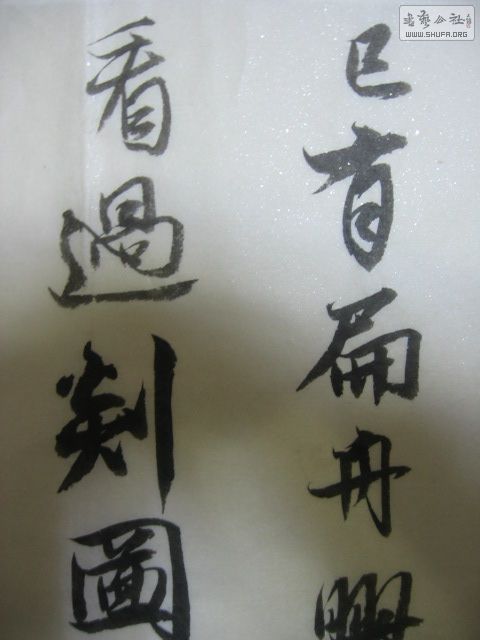 已有扁舟興
看過剡圖
書藝公社
WWW.SHUFA.ORG